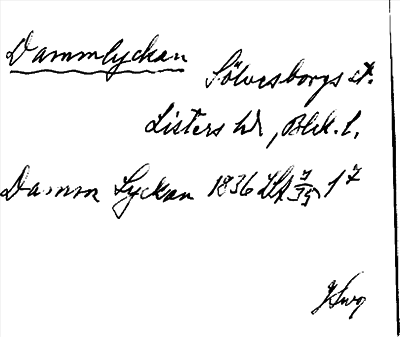 Dammlyckan
Sölvesborgs st.
Listers hd, Blek. l.
Damm Lyckan 1836 LSA